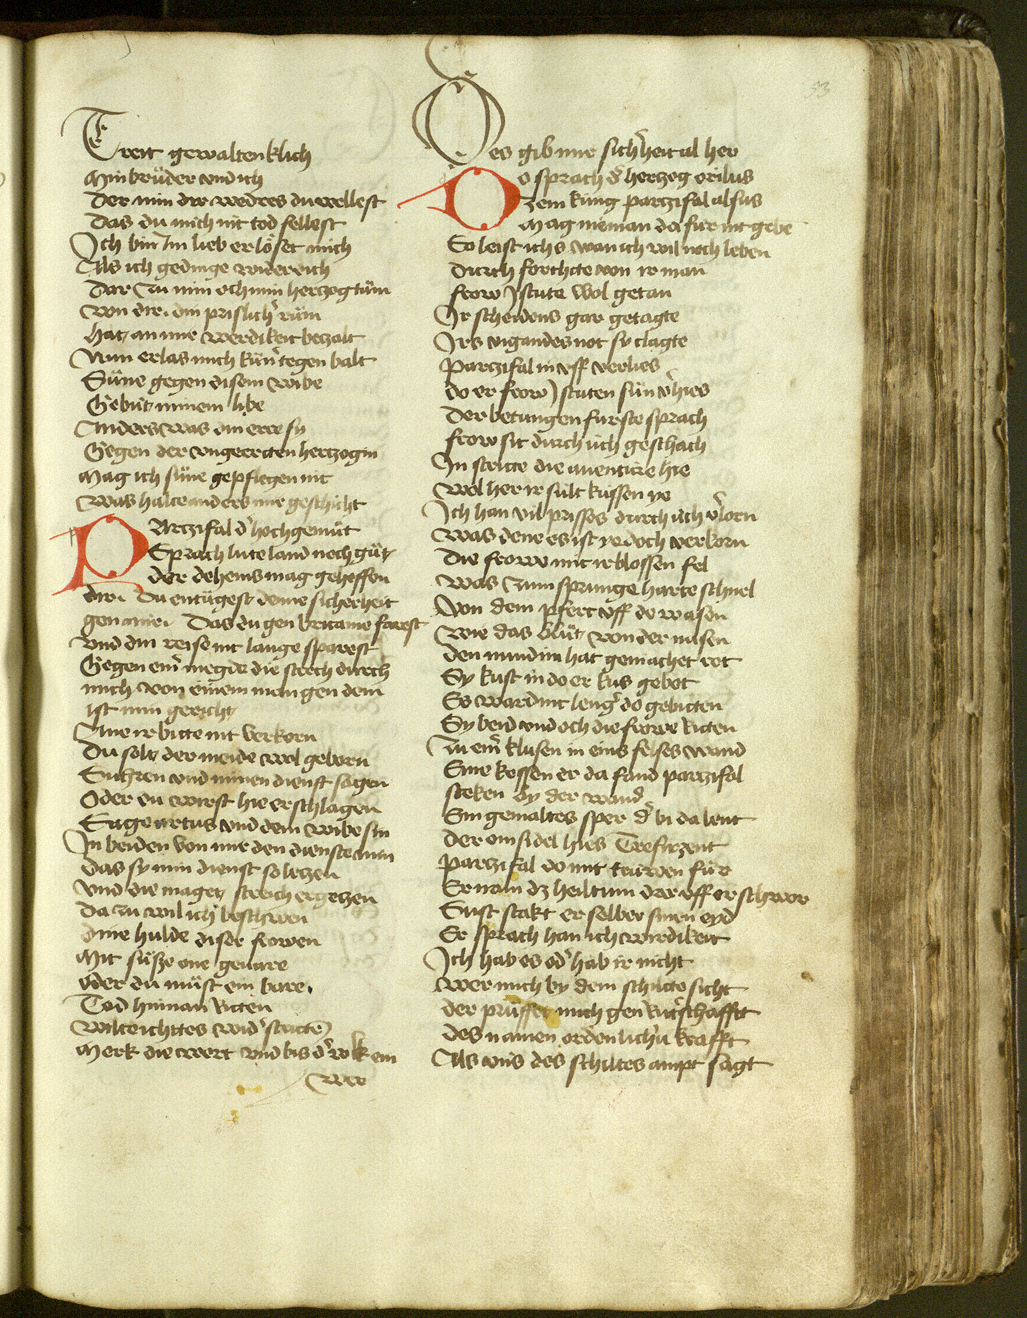 53
Treit gewaltenklich
Min brüder vnd ich
Der nim dir wedres du wellest
Das du mich nit tod fellest
Ich bin Im lieb er löset mich
Als ich gedinge wider ich
Dar zu nim och min herzogtüm
Von dir. din prislicħ rüm
Hat an mir werdikeit bezalt
Nun erlas mich kün tegen balt
Süne gegen disem wibe
Gebüt minem libe
Anders was din ere sy
Gegen der vngeerten hertzogin
Mag ich süne gepflegen nit
Was halt anders mir geschiht
PArczifal d' hochgemüt
Sprach lute land noch güt
der dehems mag gehelffen
dir. Du entügest denne sicherheit
gen mir. Das du gen britanie farest
Vnd din reise nit lange sparest
Gegen eiñ megde die slech durch
mich von einem man gen dem
ist min gericht
Ane ir bitte nit verkorn
Du solt der meide wol geborn
Sichren vnd minen dienst sagen
Oder du wirst hie erschlagen
Sage artus vnd dem wibe sin
In beiden von mir den dienst min
Das sy min dienst so letzen
Vnd die maget streich ergetzen
Da zu wil ich beschowen
dine hulde diser frowen
Mit süsze one geuare
oder du müst ein bare
Tod hinnan ritten
Wilt ichttes wid' stritte
Merk die wort vnd bis d' wk ein
wer
Des gib mir sichheit al her
Do sprach d' herzog orilus
Zem küng parzifal alsus
Mag nieman da für nit gebe
So leist ichs wan ich wil noch leben
Durch forchte von ir man
frow Iscute wol getan
Ir scheidens gar getagte
Irs vigandes not sy clagte
Parczifal in vff verlies
do er frow Iscuten sün v'hies
Der betungen furste sprach
frow sit durch üch geschach
In stritte die auentüre hie
Wol her ir sült küssen ye
Ich han vil prisses durch üch v'lorn
Was denn es ist yedoch verkorn
Die frowe mit irblossen fel
Was zum sprunge harte schnel
Von dem pfert vff de wasen
Wie das blüt von der nasen
den mund im hat gemachet rot
Sy kust in do er kus gebot
So ward nit leng' do gebitten
Sy beid vnd och die frowe ritten
Zu eiñ klusen in eins felses wand
Eine kefsen er da fand parzifal
steken by der wand
Ein gemaltes sper d' bi da lent
Der einsidel hies Trefrizent
Parzifal do mit truwen für
Er nam dz heiltum dar vff er schwor
Sust stakt er selber sinen eyd
Er sprach han ich wirdikeit
Ich hab es od' hab ir nicht
Wer mich by dem schilte sicht
der prüffet mich gen rit'schafft
des namen ordenlich'u krafft
Als vns des schiltes ampt sagt